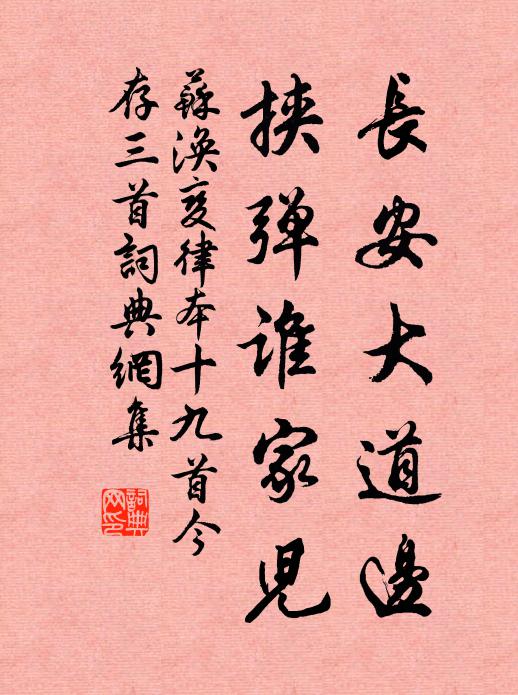 長安大道邊
挾弹谁家児
蘇渙变律本十九首今
存三首詞典網集
詞典
网印